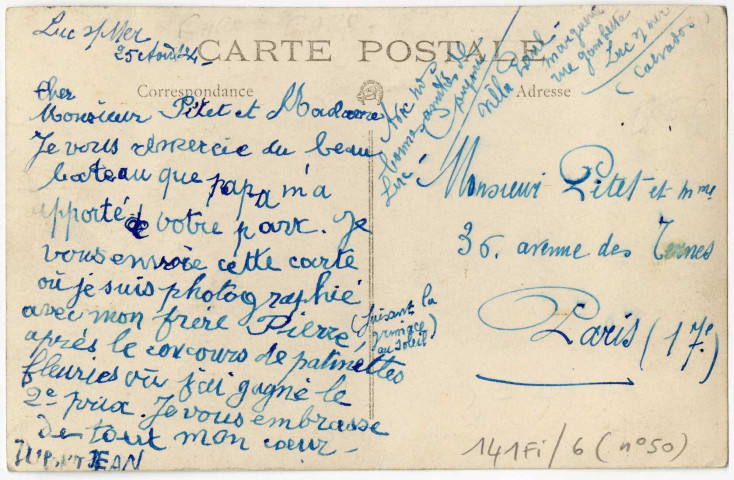 Luc s/Mer
25 Août 24
CARTE POSTALE
Correspondance
Adresse
Cher
Monsieur Pitet et Madame
Je vous remercie du beau
bateau que papa m'a
apporté de votre part. Je
vous envoie cette carte
où je suis photographié
avec mon frère Pierre
(faisant la
grimace
au soleil)
après le concours de patinettes
fleuries où j'ai gagné le
2e prix. Je vous embrasse
de tout mon cœur -
JEAN
bonne
Luc -
Villa
rue gambetta
Luc s/mer
(Calvados)
Monsieur Pitet et mme
36. avenue des Ternes
Paris (17e)
141Fi/6 (n°50)